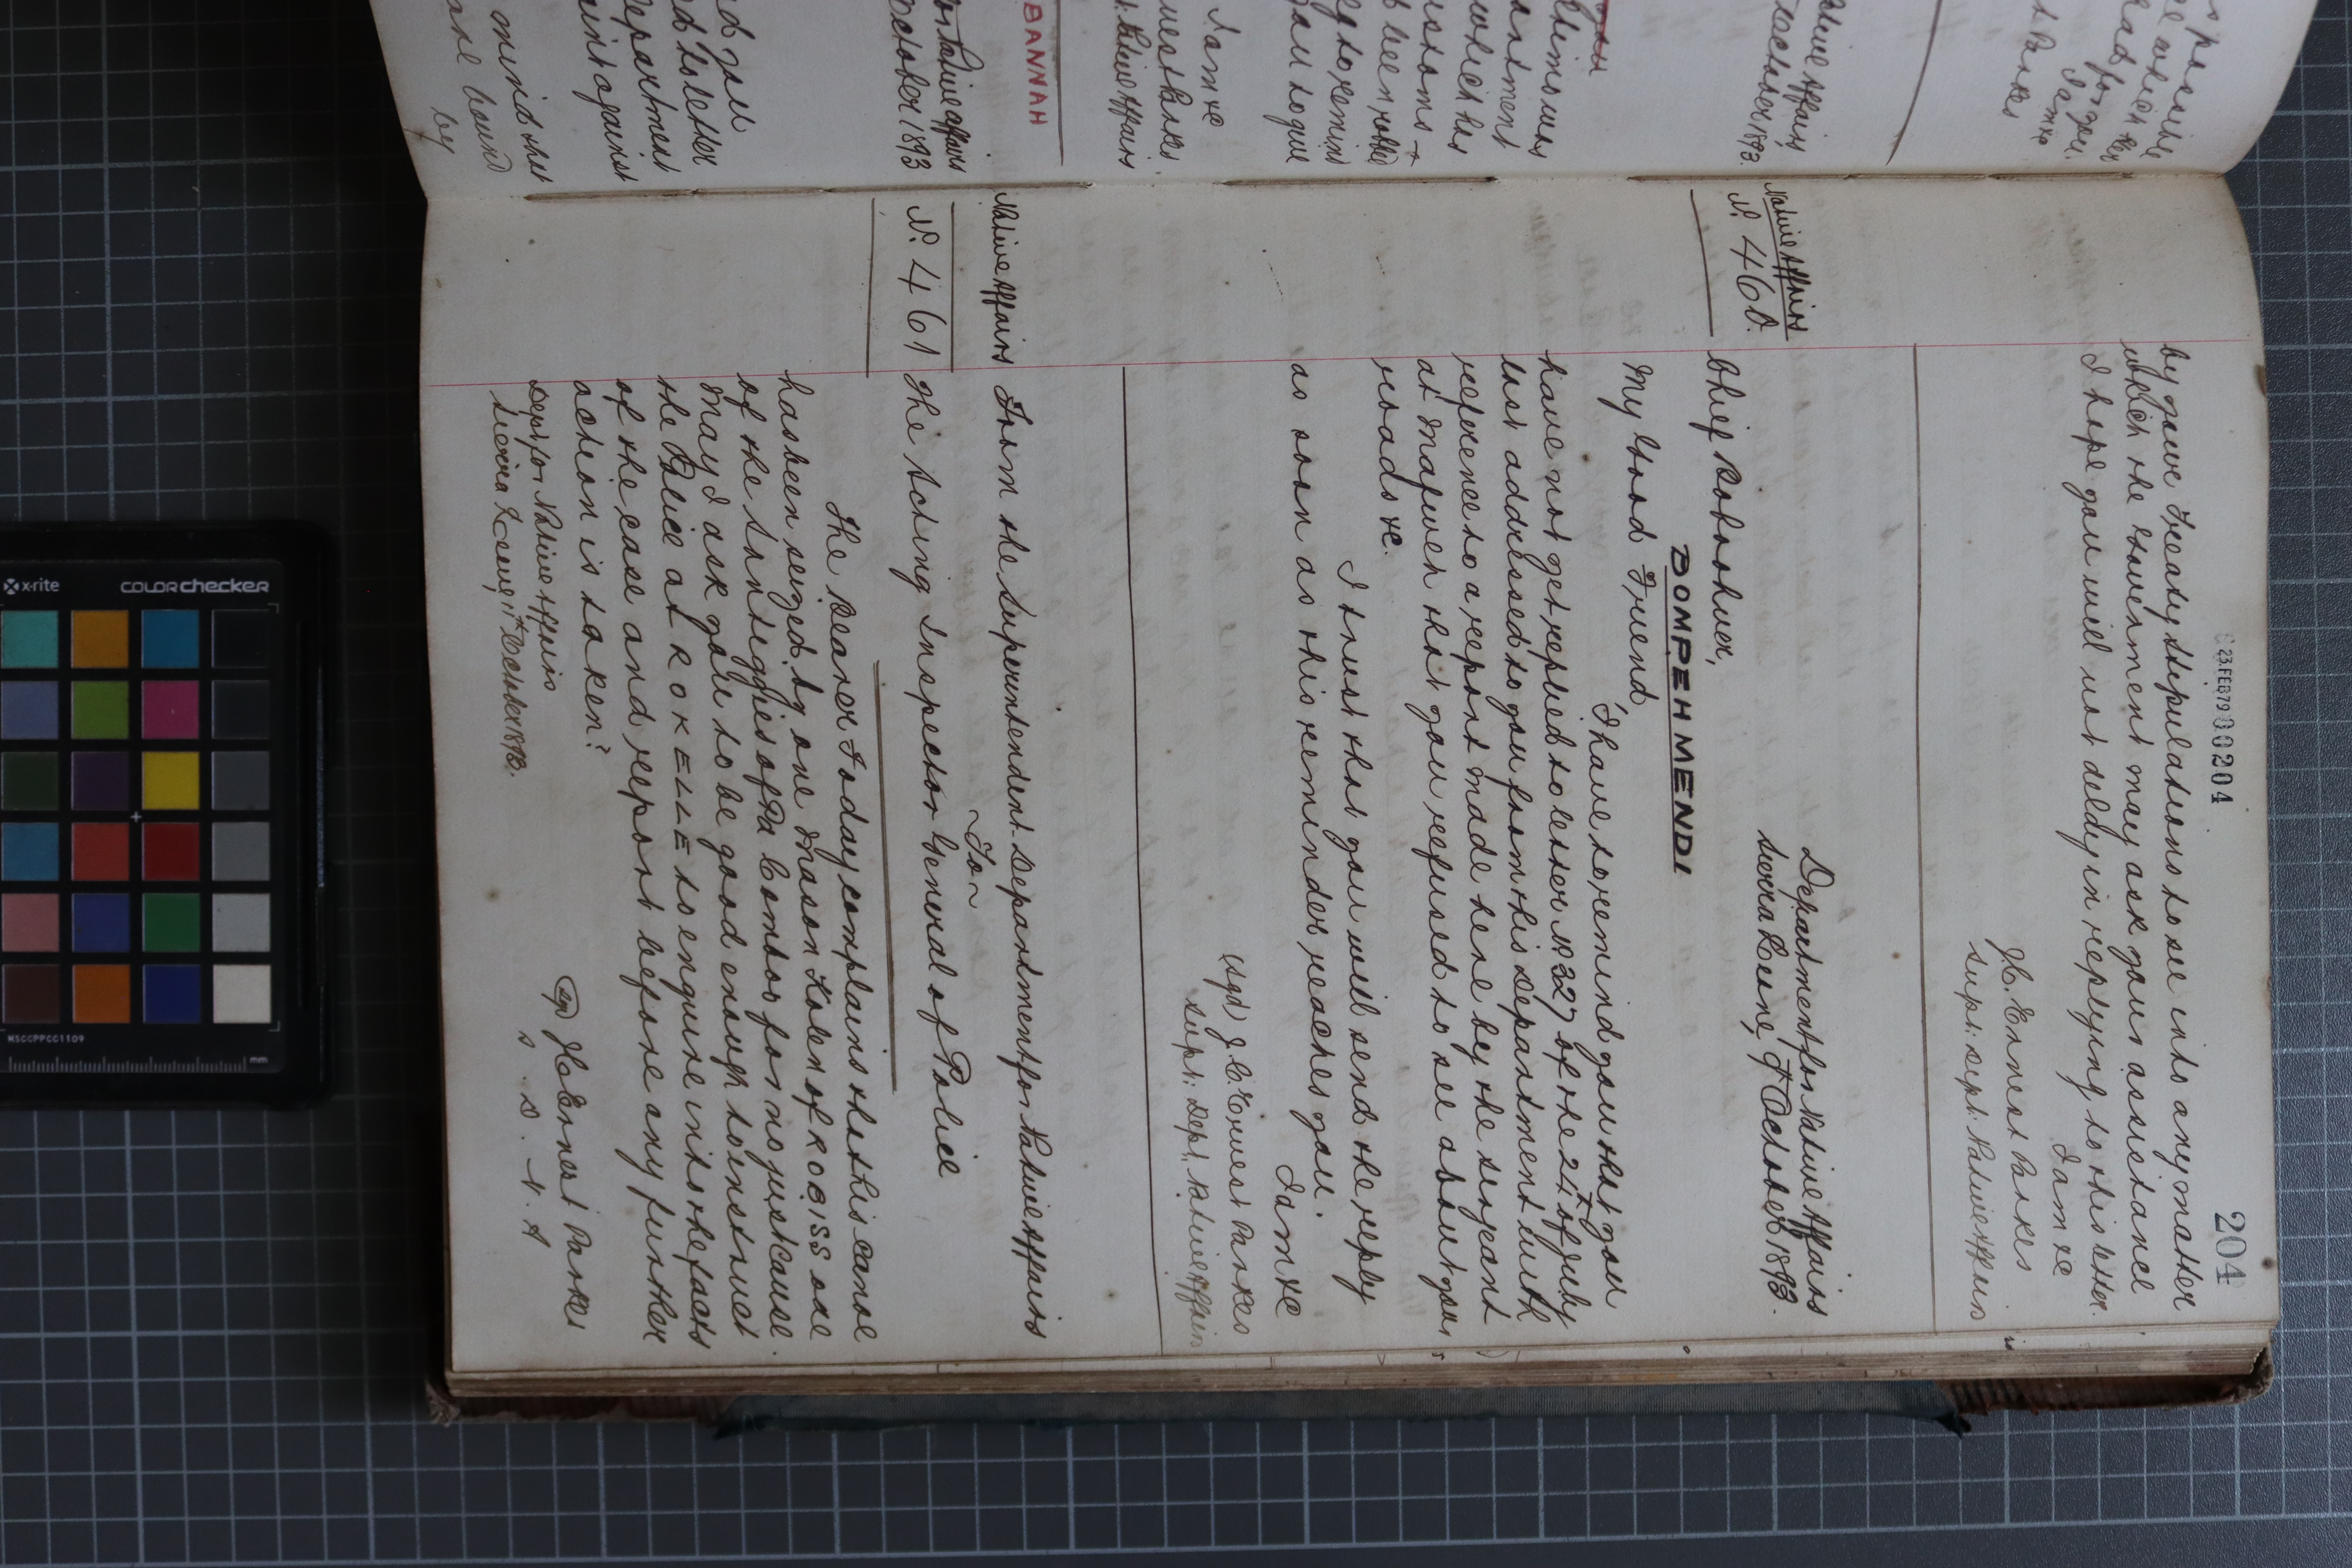 204
23 FEB 79 00204
by your Treaty stipulations to see into any matter
which the Government may ask your assistance
I hope you will not delay in replying to this letter.
I am &c
J. C. Ernest Parkes
Supt: Dept. Native Affairs
Native Affairs
N. 460.
Department for Native Affairs
Sierra Leone, 9th October 1893.
Chief
BOMPEH MENDI
My Good Friend,
I have to remind you that you
have not yet replied to letter No 327 of the 24th of July
last addressed to you from this Department with
reference to a report made here by the Sergeant
at Mafweh that you refused to see about your
roads &c.
I trust that you will send the reply
as soon as this reminder reaches you.
I am &c
(Sgd) J. C. Ernest Parkes
Supt: Dept. Native Affairs
Native Affairs
N. 461
From the Superintendent Department for Native Affairs
To
The Acting Inspector General of Police
The Bearer Today complains that his canoe
has been seized by one Mason Kolen of ROCISS one
of the Santiggies of Pa Combor for no just cause.
May I ask you to be good enough to instruct
the Police at ROKELLE to enquire into the facts
of the case and report before any further
action is taken?
(Sgd) J. C. Ernest Parkes
S. D. N. A
Dept for Native Affairs
Sierra Leone, 11th October 1893.
Native Affairs
October 1893
I am &c
Parkes
Native Affairs
BANNAH
October 1893
Department
against
mind that
are bound
by